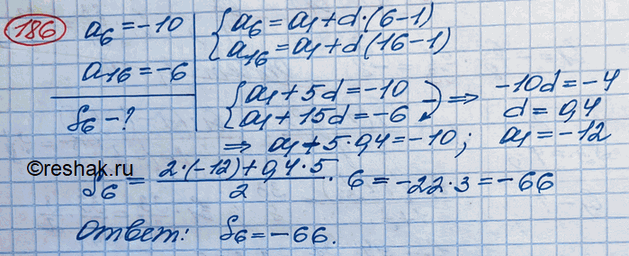 186 a₆ = -10 { a₆ = a₁ + d·(6-1)
a₁₆ = -6 { a₁₆ = a₁ + d(16-1)
S₆ - ? { a₁ + 5d = -10 ⇒ -10d = -4
{ a₁ + 15d = -6 d = 0,4
⇒ a₁ + 5·0,4 = -10; a₁ = -12
©reshak.ru
S₆ = (2·(-12) + 0,4·5)/2 · 6 = -22·3 = -66
Ответ: S₆ = -66.